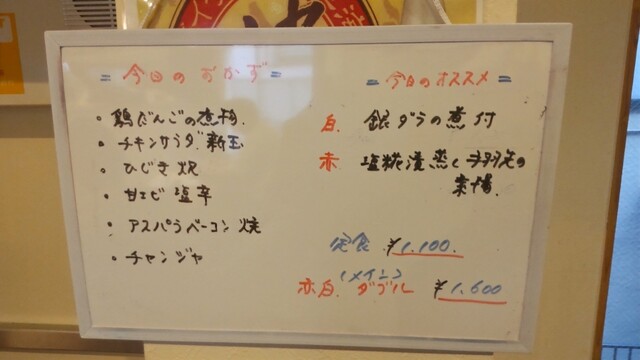 = 今日のおかず =
・鶏だんごの煮物
・チキンサラダ 新玉
・ひじき炊
・甘エビ塩辛
・アスパラベーコン焼
・チャンジャ
= 今日のオススメ =
白. 銀ダラの煮付
赤. 塩糀漬蒸し手羽先の
定食 ¥1,100.
(メイン)
赤白. ダブル ¥1,600